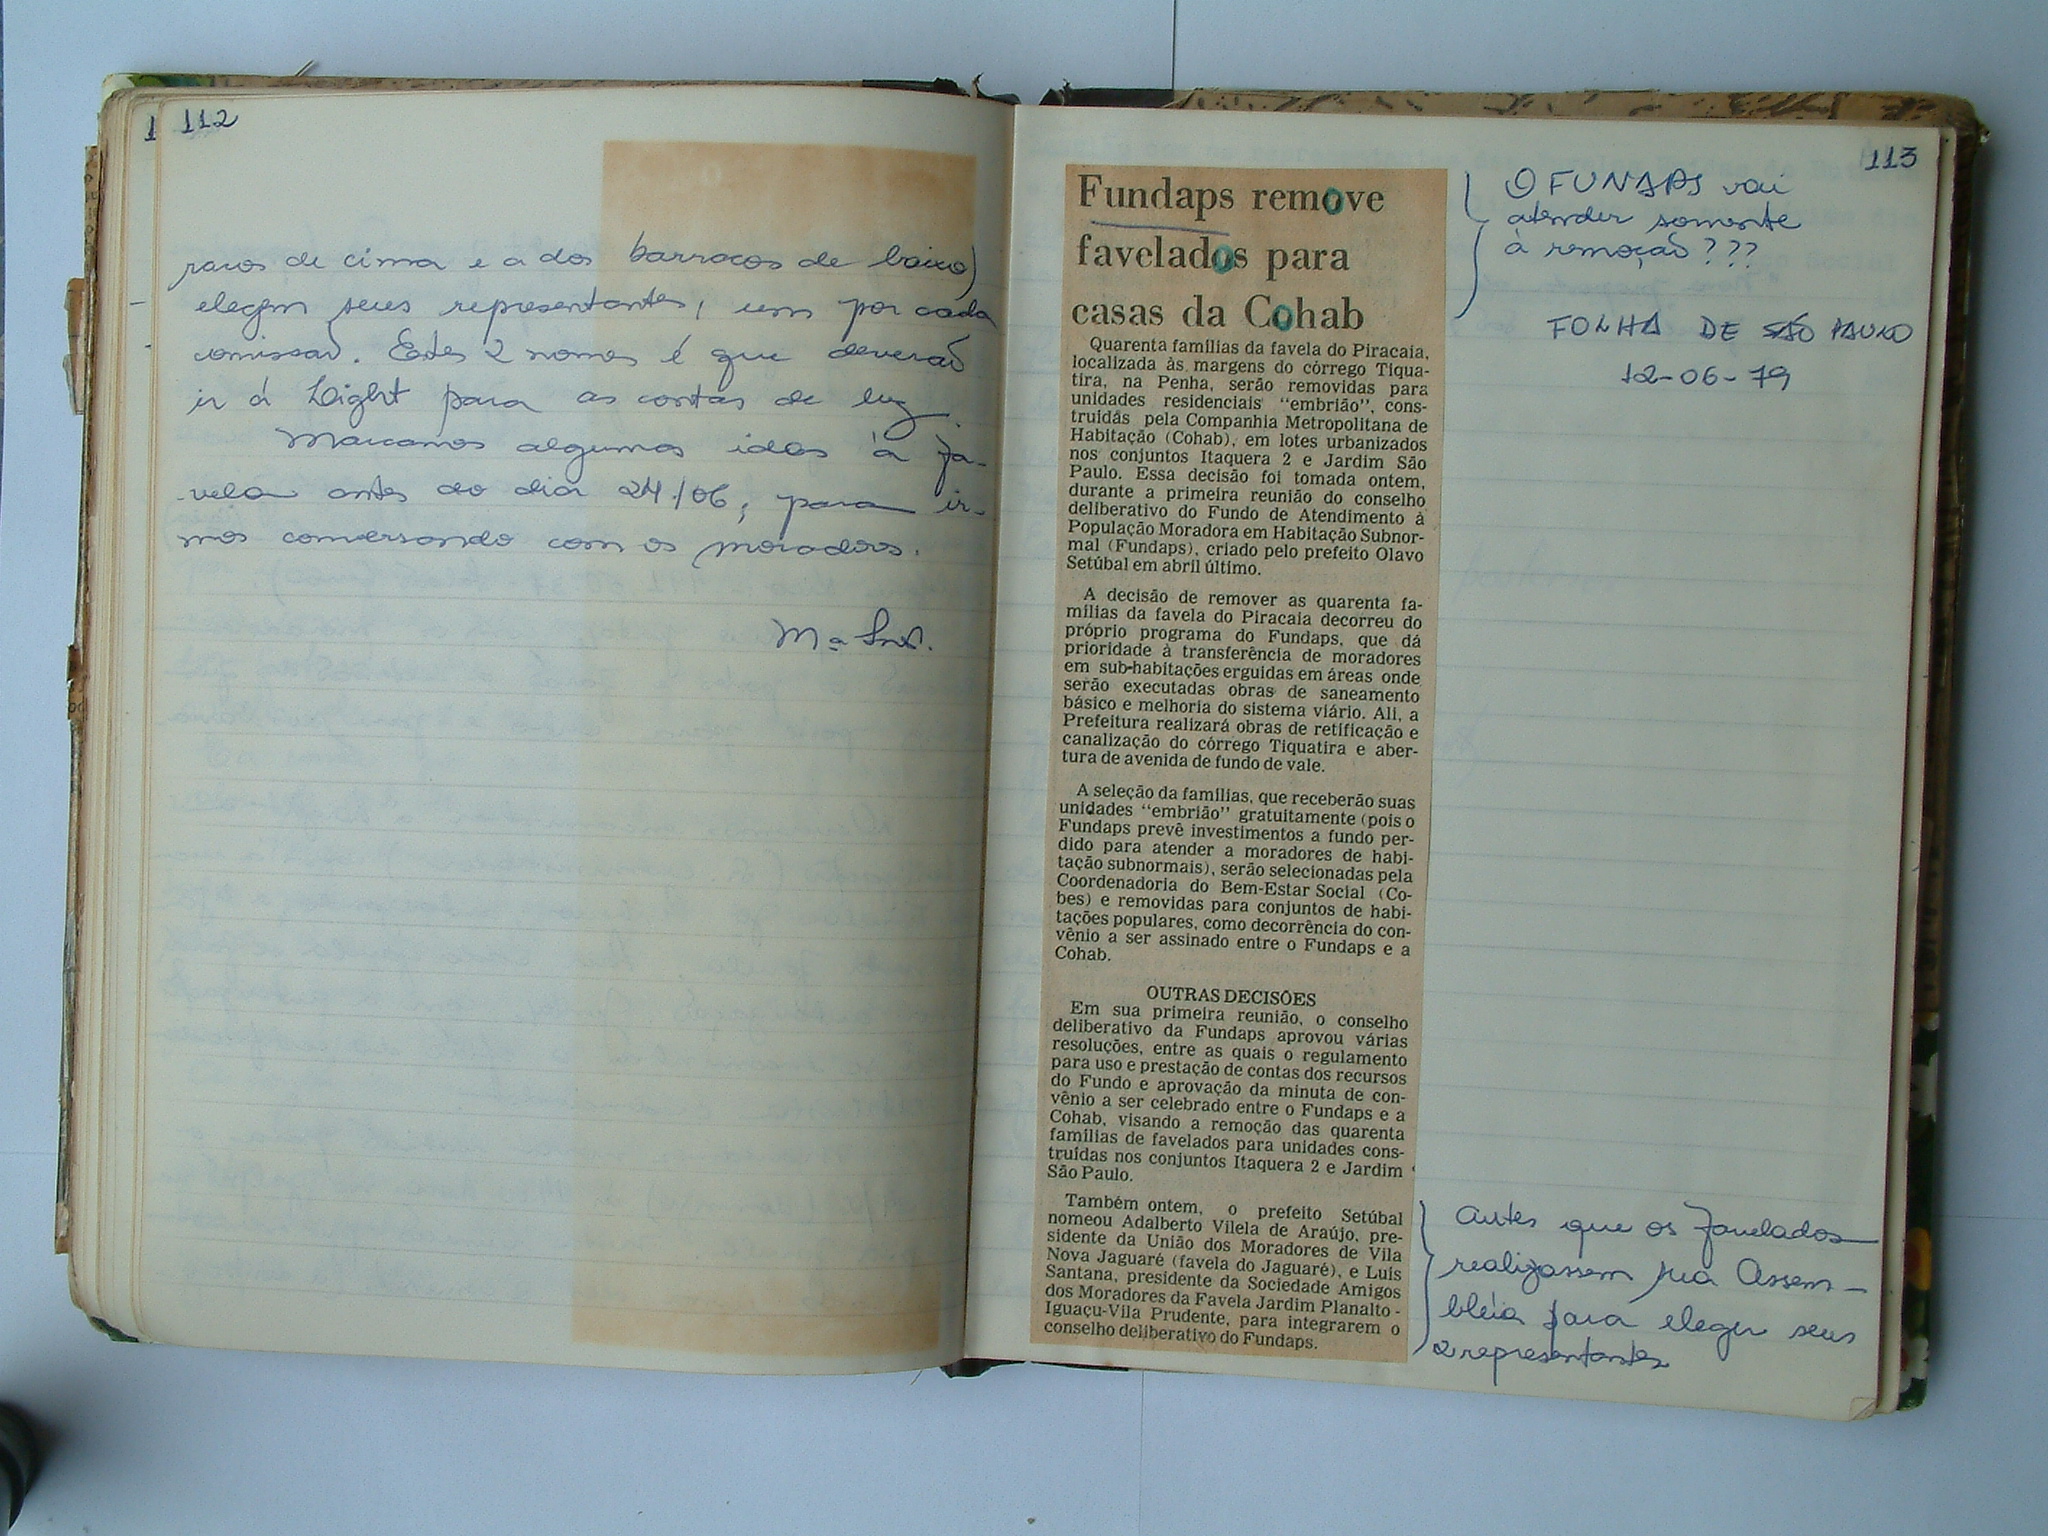 112
racos de cima e a dos barracos de baixo)
elegem seus representantes, um por cada
comissão. Estes 2 nomes é que deverão
ir à Light para as contas de luz.
Marcamos algumas idas à fa-
vela antes do dia 24/06, para ir-
mos conversando com os moradores.
Mª Inês.
113
Fundaps remove
favelados para
casas da Cohab
Quarenta famílias da favela do Piracaia,
localizada às margens do córrego Tiqua-
tira, na Penha, serão removidas para
unidades residenciais "embrião", cons-
truidas pela Companhia Metropolitana de
Habitação (Cohab), em lotes urbanizados
nos conjuntos Itaquera 2 e Jardim São
Paulo. Essa decisão foi tomada ontem,
durante a primeira reunião do conselho
deliberativo do Fundo de Atendimento à
População Moradora em Habitação Subnor-
mal (Fundaps), criado pelo prefeito Olavo
Setúbal em abril último.
A decisão de remover as quarenta fa-
mílias da favela do Piracaia decorreu do
próprio programa do Fundaps, que dá
prioridade à transferência de moradores
em sub-habitações erguidas em áreas onde
serão executadas obras de saneamento
básico e melhoria do sistema viário. Ali, a
Prefeitura realizará obras de retificação e
canalização do córrego Tiquatira e aber-
tura de avenida de fundo de vale.
A seleção da famílias, que receberão suas
unidades "embrião" gratuitamente (pois o
Fundaps prevê investimentos a fundo per-
dido para atender a moradores de habi-
tação subnormais), serão selecionadas pela
Coordenadoria do Bem-Estar Social (Co-
bes) e removidas para conjuntos de habi-
tações populares, como decorrência do con-
vênio a ser assinado entre o Fundaps e a
Cohab.
OUTRAS DECISÕES
Em sua primeira reunião, o conselho
deliberativo da Fundaps aprovou várias
resoluções, entre as quais o regulamento
para uso e prestação de contas dos recursos
do Fundo e aprovação da minuta de con-
vênio a ser celebrado entre o Fundaps e a
Cohab, visando a remoção das quarenta
famílias de favelados para unidades cons-
truídas nos conjuntos Itaquera 2 e Jardim
São Paulo.
Também ontem, o prefeito Setúbal
nomeou Adalberto Vilela de Araújo, pre-
sidente da União dos Moradores de Vila
Nova Jaguaré (favela do Jaguaré), e Luís
Santana, presidente da Sociedade Amigos
dos Moradores da Favela Jardim Planalto -
Iguaçu-Vila Prudente, para integrarem o
conselho deliberativo do Fundaps.
O FUNAPS vai
atender somente
à remoção???
FOLHA DE SÃO PAULO
12-06-79
Antes que os favelados
realizassem sua Assem-
bléia para eleger seus
2 representantes